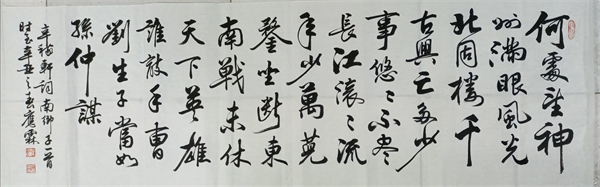 何處望神
州滿眼風光
北固樓千
古興亡多少
事悠〻不盡
長江滾〻流
年少萬兜
鍪坐斷東
南戰未休
天下英雄
誰敵手曹
劉生子當如
孫仲謀
辛稼軒詞南鄉子一首
時在辛丑之春鷹霖